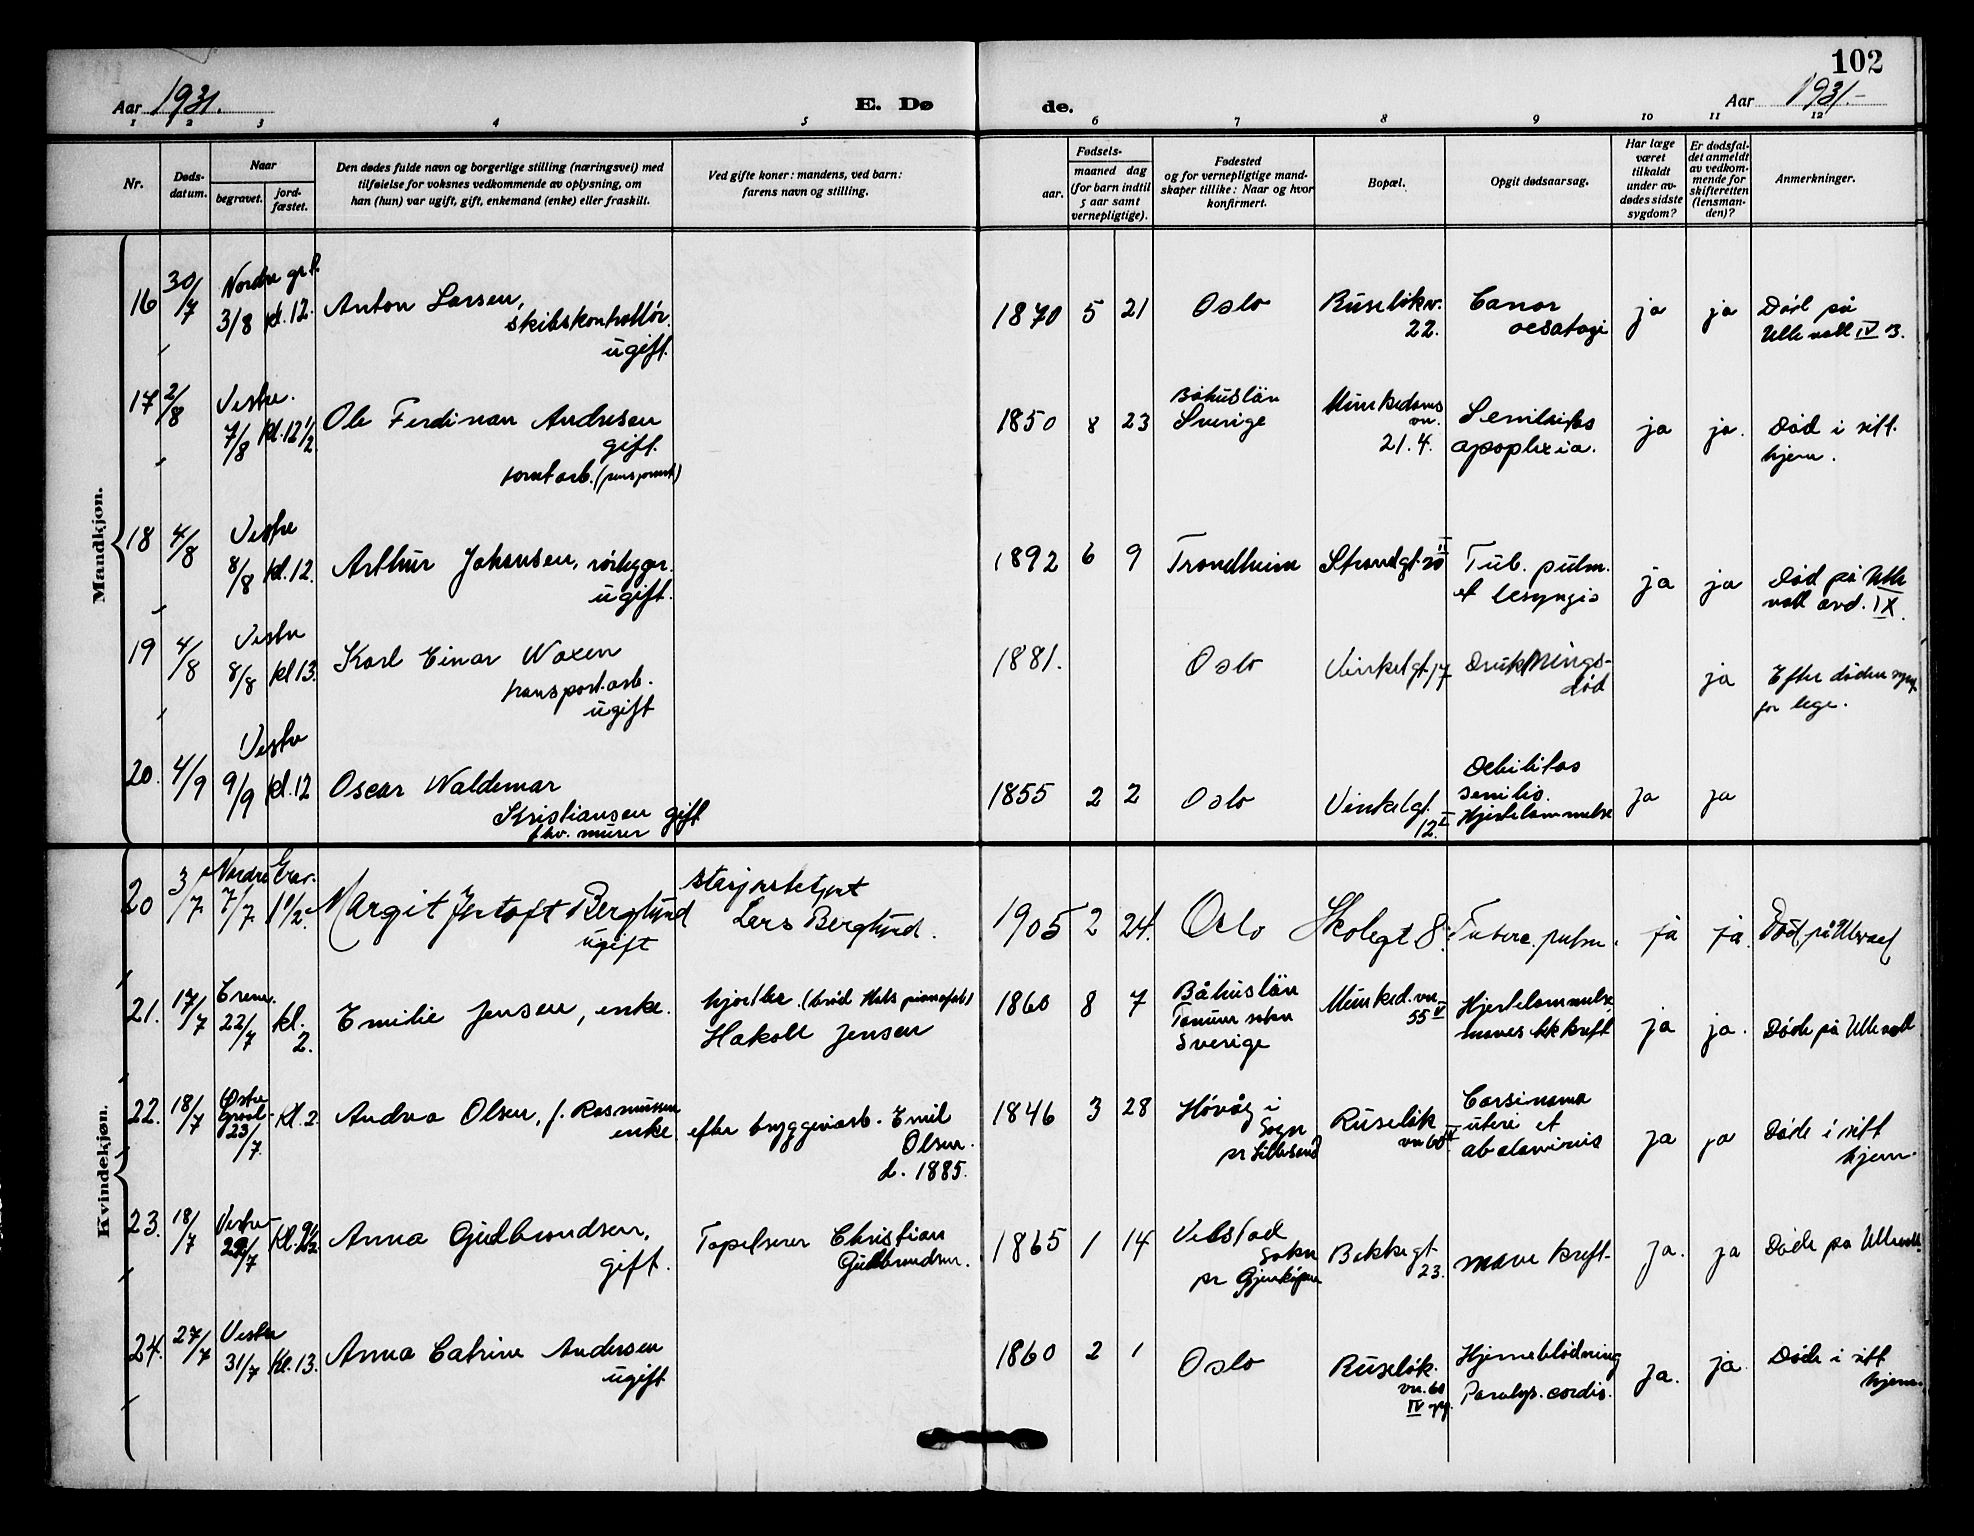 102
Aar 1931.
E. Dø
de.
Aar 1931.-
1 2 3 4 5 6 7 8 9 10 11 12
Nr.
Døds-
datum.
Naar
begravet.
jord-
fæstet.
Den dødes fulde navn og borgerlige stilling (næringsvei) med
tilføielse for voksnes vedkommende av oplysning, om
han (hun) var ugift, gift, enkemand (enke) eller fraskilt.
Ved gifte koner: mandens, ved barn:
farens navn og stilling.
Fødsels-
aar.
maaned dag
(for barn indtil
5 aar samt
vernepligtige).
Fødested
og for vernepligtige mand-
skaper tillike: Naar og hvor
konfirmert.
Bopæl.
Opgit dødsaarsag.
Har læge
været
tilkaldt
under av-
dødes sidste
sygdom?
Er dødsfal-
det anmeldt
av vedkom-
mende for
skifteretten
(lensman-
den)?
Anmerkninger.
Mandkjøn.
16 30/7 Nordre gr.l.
3/8 kl. 12. Anton Larsen,
skibskontrollør.
ugift.
1870 5 21 Oslo Ruseløkv.
22.
Cancr
oesofagi
ja ja Död på
Ullevåll IV B.
17 2/8 Vestre.
7/8 kl. 12 1/2 Ole Ferdinan Andresen
gift.
1850 8 23 Båhuslän
Sverige
Munkedams
vn.
21. 4.
Senilitas
apoplexia.
ja ja. Død i sitt
hjem.
18 4/8 Vestre
8/8 kl. 12. Arthur Johansen, rørlegger.
ugift.
1892 6 9 Trondheim Strandgt. 20 II Tub. pulm.
et laryngis
ja ja Död på Ulle
voll avd. IX.
19 4/8 Vestre
8/8 kl 13. Karl Einar Waxen
transport.arb.
ugift
1881. Oslo Vinkelgt. 17 Druknings-
död
ja Efter döden
for lege.
20. 4/9 Vestre
9/9 kl. 12 Oscar Waldemar
Kristiansen gift
fhv. murer
1855 2 2 Oslo Vinkelgt.
12. I
Debilitas
senilis.
Hjertelammelse
ja ja
Kvindekjøn.
20 3/7 Nordre Grav.
7/7 1 1/2 Margit Jentoft Berglund
ugift
Lars Berglund.
1905 2 24. Oslo Skolegt 8. Tuberc. pulm. ja ja. Död på Ullevael
21. 17/7 Crem.
22/7 kl.
2.
Emilie Jensen, enke.
Hakon Jensen
1860 8 7 Båhuslän
Tanum sokn
Sverige
Munked. vn.
55 V
Hjertelammelse
ja ja. Döde på Ullevoll
22. 18/7 Østre
gravl.
23/7 kl. 2. Andrea Olsen, f. Rasmussen
enke.
efter bryggeriarb. Emil
Olsen.
d. 1885.
1846 3 28 Hövåg i
sogn
pr Lillesand
Ruseløk
vn 60 IV
Carsinoma
uteri et
abdominis
ja ja Döde i sitt
hjem.
23. 18/7 Vestre
22/7 Anna Gudbrandsen,
gift.
Tapetserer Christian
Gudbrandsen.
1865 1 14
sokn
pr
Bakkegt.
23.
mavekreft.
ja. ja Döde på Ullevoll.
24. 27/7 Vestre
31/7 Kl. 13. Anna Catrine Andersen
ugift
1860 2 1 Oslo Ruseløk.
vn. 60
IV
Hjerneblödning
Paralys. cordis.
ja. ja Döde i sitt
hjem.